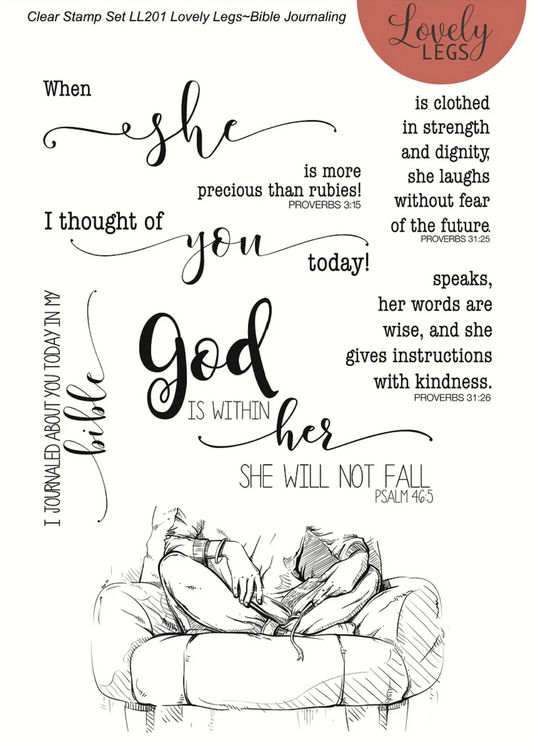 Clear Stamp Set LL201 Lovely Legs~Bible Journaling
Lovely
LEGS
When
she
is more
precious than rubies!
PROVERBS 3:15
I thought of
you
today!
is clothed
in strength
and dignity,
she laughs
without fear
of the future.
PROVERBS 31:25
speaks,
her words are
wise, and she
gives instructions
with kindness.
PROVERBS 31:26
I JOURNALED ABOUT YOU TODAY IN MY
bible
God
IS WITHIN
her
SHE WILL NOT FALL
PSALM 46:5